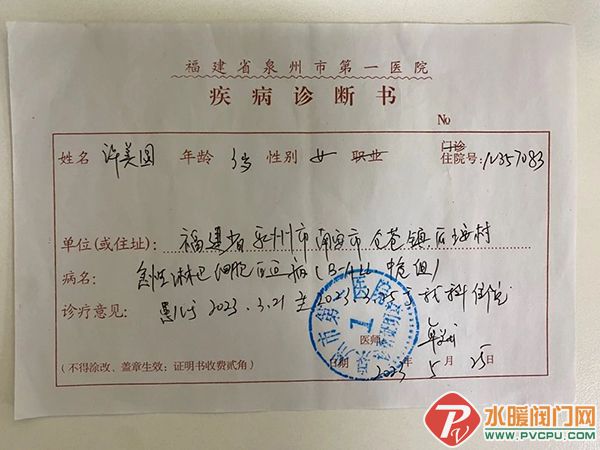 福建省泉州市第一医院
疾病诊断书
No
姓名 许美圆 年龄 3岁 性别 女 职业 门诊 住院号: 12357083
单位(或住址): 福建省泉州市南安市仑苍镇后 村
病名: 急性淋巴细胞白血病(B-ALL 中危组)
诊疗意见: 患儿于2023.3.21至2023. 于我科住院
医师
日期 2023年5月25日
(不得涂改、盖章生效; 证明书收费贰角)
水暖阀门网
WWW.PVCPU.COM